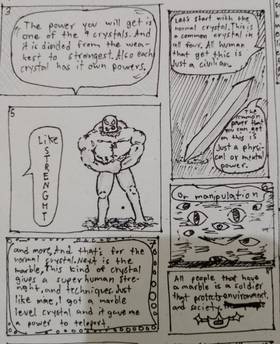 3
The power you will get is
one of the 4 crystals. And
it is divided from the wea-
kest to strongest. Also each
crystal has it own powers.
Let's start with the
normal crystal. This is
a common crystal in
all four. All human
that get this is
Just a civilian.
The
common
power that
you can get
on this is
Just a physi-
cal or mental
power.
5
Like
STRENGHT
Or manipulation
and more, And that's for the
normal crystal. Next is the
marble, This kind of crystal
gives a super human stre-
nght and techniques. Just
like mae, I got a marble
level crystal and it gave me
a power to teleport.
All people that have
a marble is a soldier
that protects environment
and society.